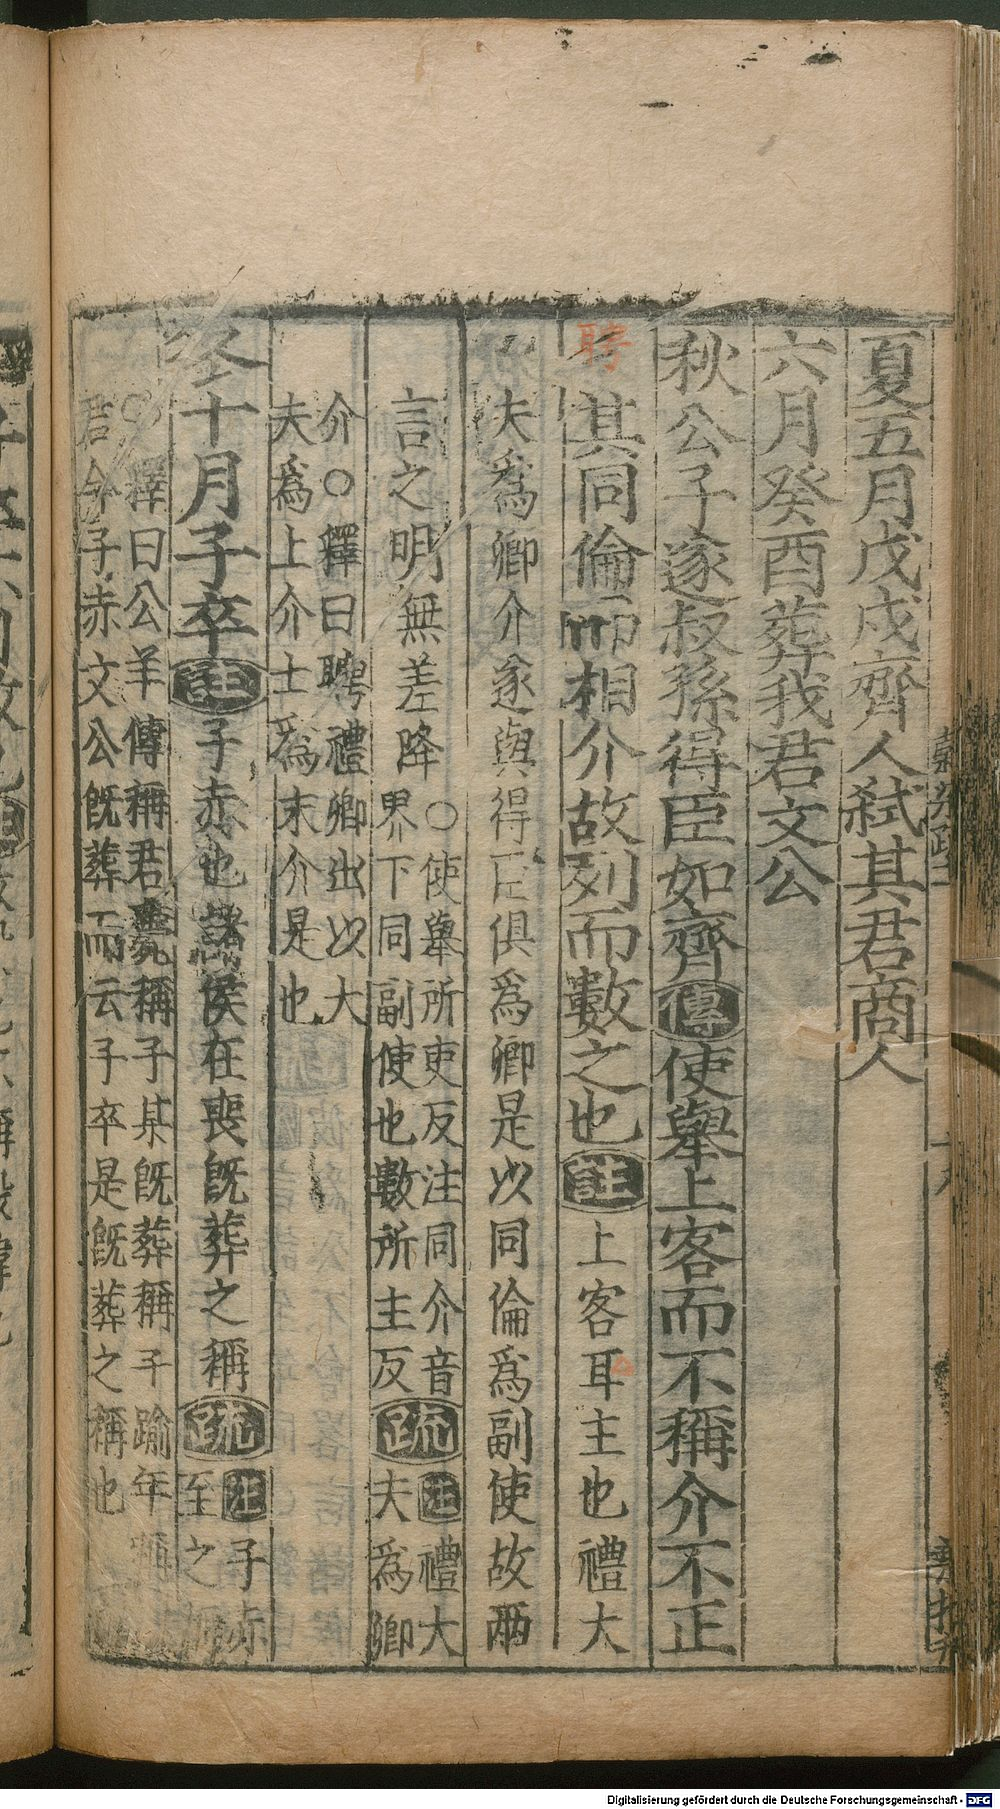 夏五月戊戌齊人弑其君商人
六月癸酉葬我君文公
秋公子遂叔孫得臣如齊傳使舉上客而不稱介不正
其同倫而相介故列而數之也註上客耳主也禮大
聘
夫爲卿介遂與得臣俱爲卿是以同倫爲副使故兩
言之明無差降
○使舉所吏反注同介音
界下同副使也數所主反
疏
註禮大
夫爲卿
介○釋曰聘禮卿出以大
夫爲上介士爲末介是也
冬十月子卒註子赤也諸侯在喪既葬之稱疏
註子赤
至之稱
○釋曰公羊傳稱君薨稱子某既葬稱子踰年稱
君今子赤文公既葬而云子卒是既葬之稱也
Digitalisierung gefördert durch die Deutsche Forschungsgemeinschaft - DFG